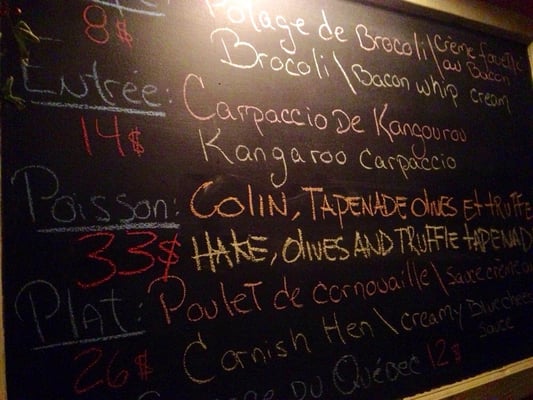 Potage de Brocoli\crème fouettée
8$ au Bacon
Brocoli\Bacon whip cream
Entrée: Carpaccio De Kangourou
14$ Kangaroo carpaccio
Poisson: COLIN, TAPENADE OLIVES ET TRUFFE
33$ HAKE, OLIVES AND TRUFFLE TAPENAD
Plat: Poulet de cornouaille\sauce crème
Cornish Hen\creamy Blue cheese
26$ sauce
DU Québec 12$